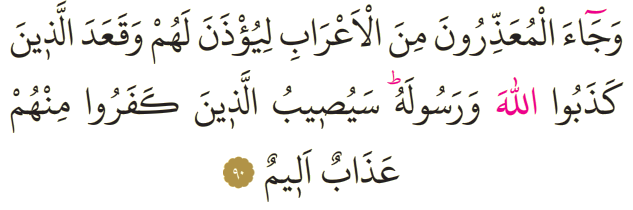 وَجَٓاءَ الْمُعَذِّرُونَ مِنَ الْاَعْرَابِ لِيُؤْذَنَ لَهُمْ وَقَعَدَ الَّذ۪ينَ
كَذَبُوا اللّٰهَ وَرَسُولَهُۜ سَيُص۪يبُ الَّذ۪ينَ كَفَرُوا مِنْهُمْ
عَذَابٌ اَل۪يمٌ ﴿٩٠﴾